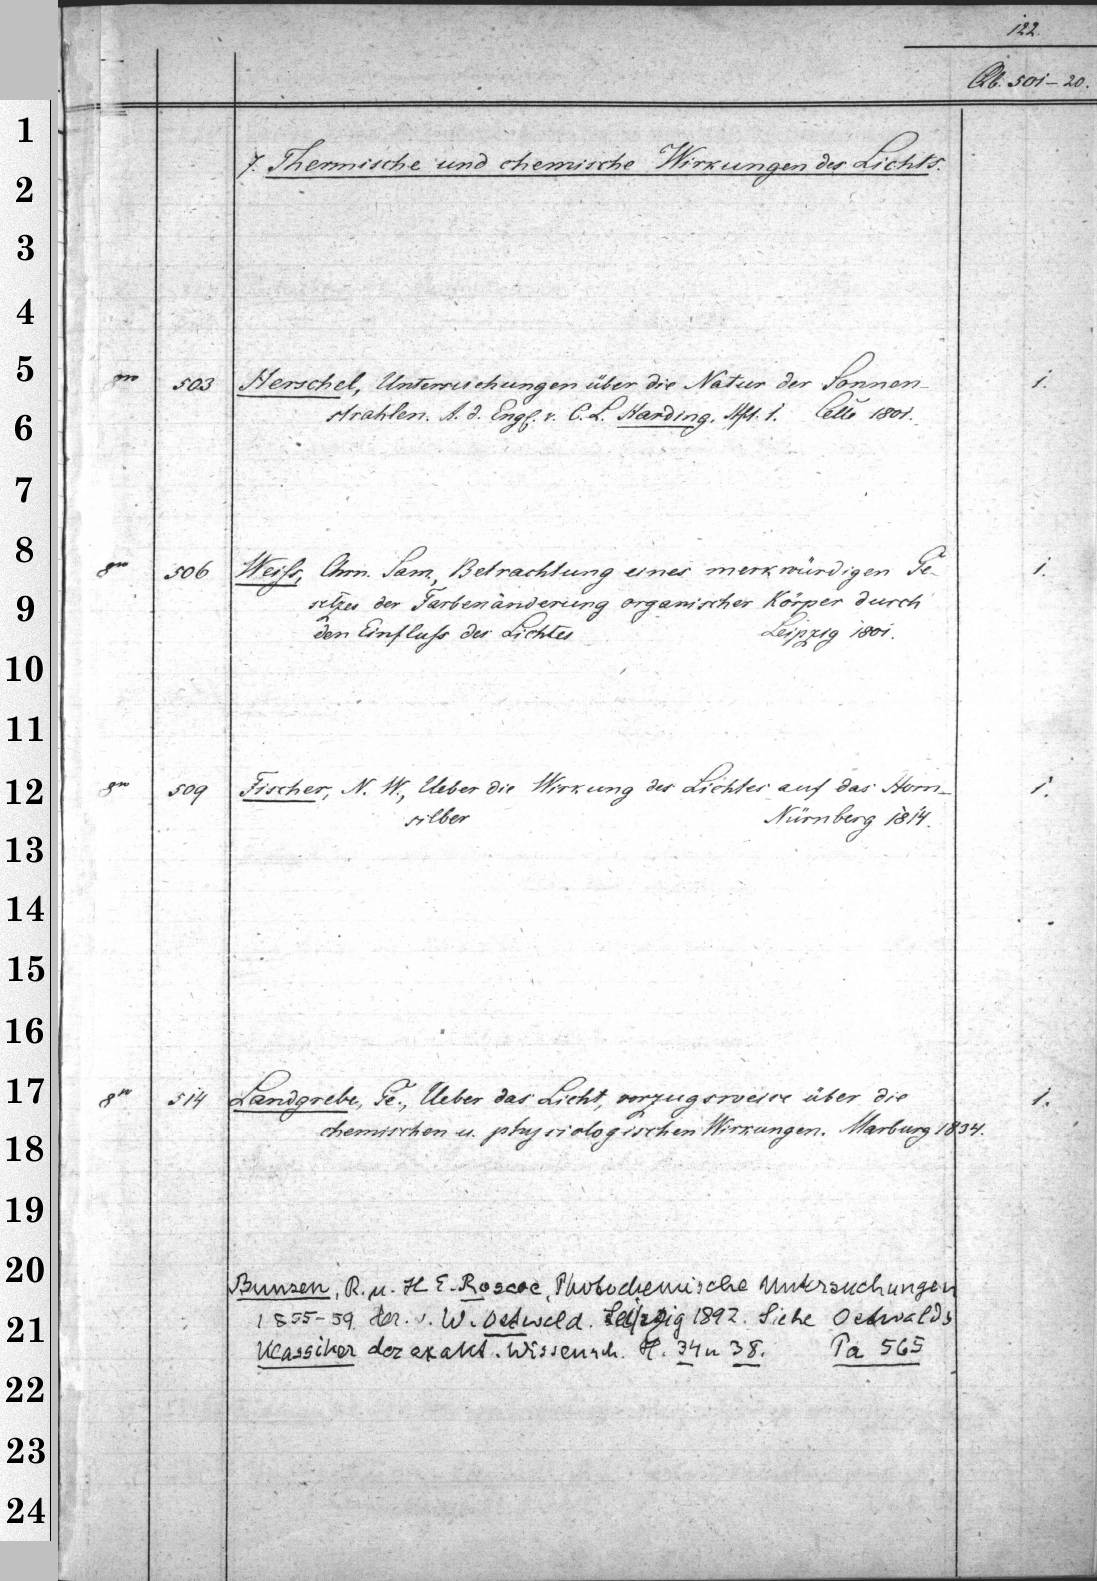 122.
501-20.
1
7. Thermische und chemische Wirkungen des Lichts.
2
3
4
5
8vo 503 Herschel, Untersuchungen über die Natur der Sonnen- 1.
strahlen. A. d. Engl. v. C. L. Harding. Hft. 1. Celle 1801.
6
7
8
8vo 506 Weiss, Chrn. Sam., Betrachtung eines merkwürdigen Ge- 1.
9
setzes der Farbenänderung organischer Körper durch
den Einfluss des Lichtes Leipzig 1801.
10
11
12
8vo 509 Fischer, N. W., Ueber die Wirkung des Lichtes auf das Horn- 1.
silber Nürnberg 1814.
13
14
15
16
17
8vo 514 Landgrebe, Ge., Ueber das Licht, vorzugsweise über die 1.
chemischen u. physiologischen Wirkungen. Marburg 1834.
18
19
20
Bunsen, R. u. H. E. Roscoe, Photochemische Untersuchungen
1855-59. her. v. W. Ostwald. Leipzig 1892. Siehe Ostwalds
21
Klassiker der exakt. Wissensch. H. 34 u 38. Pa 565
22
23
24